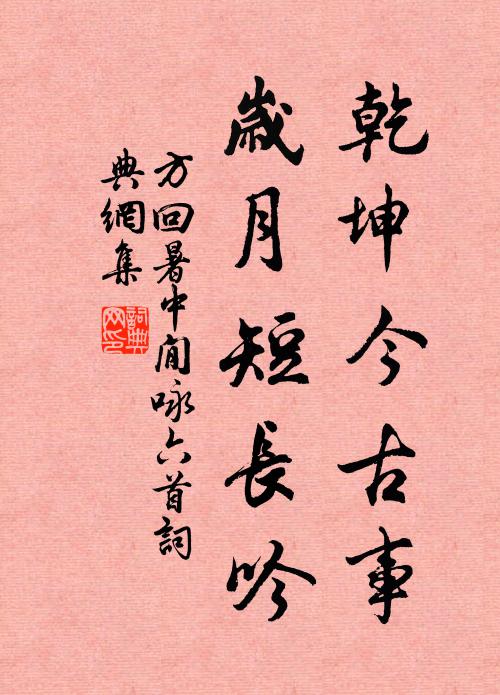 乾坤今古事
歲月短長吟
方回暑中閒咏六首詞
典網集
詞典网印